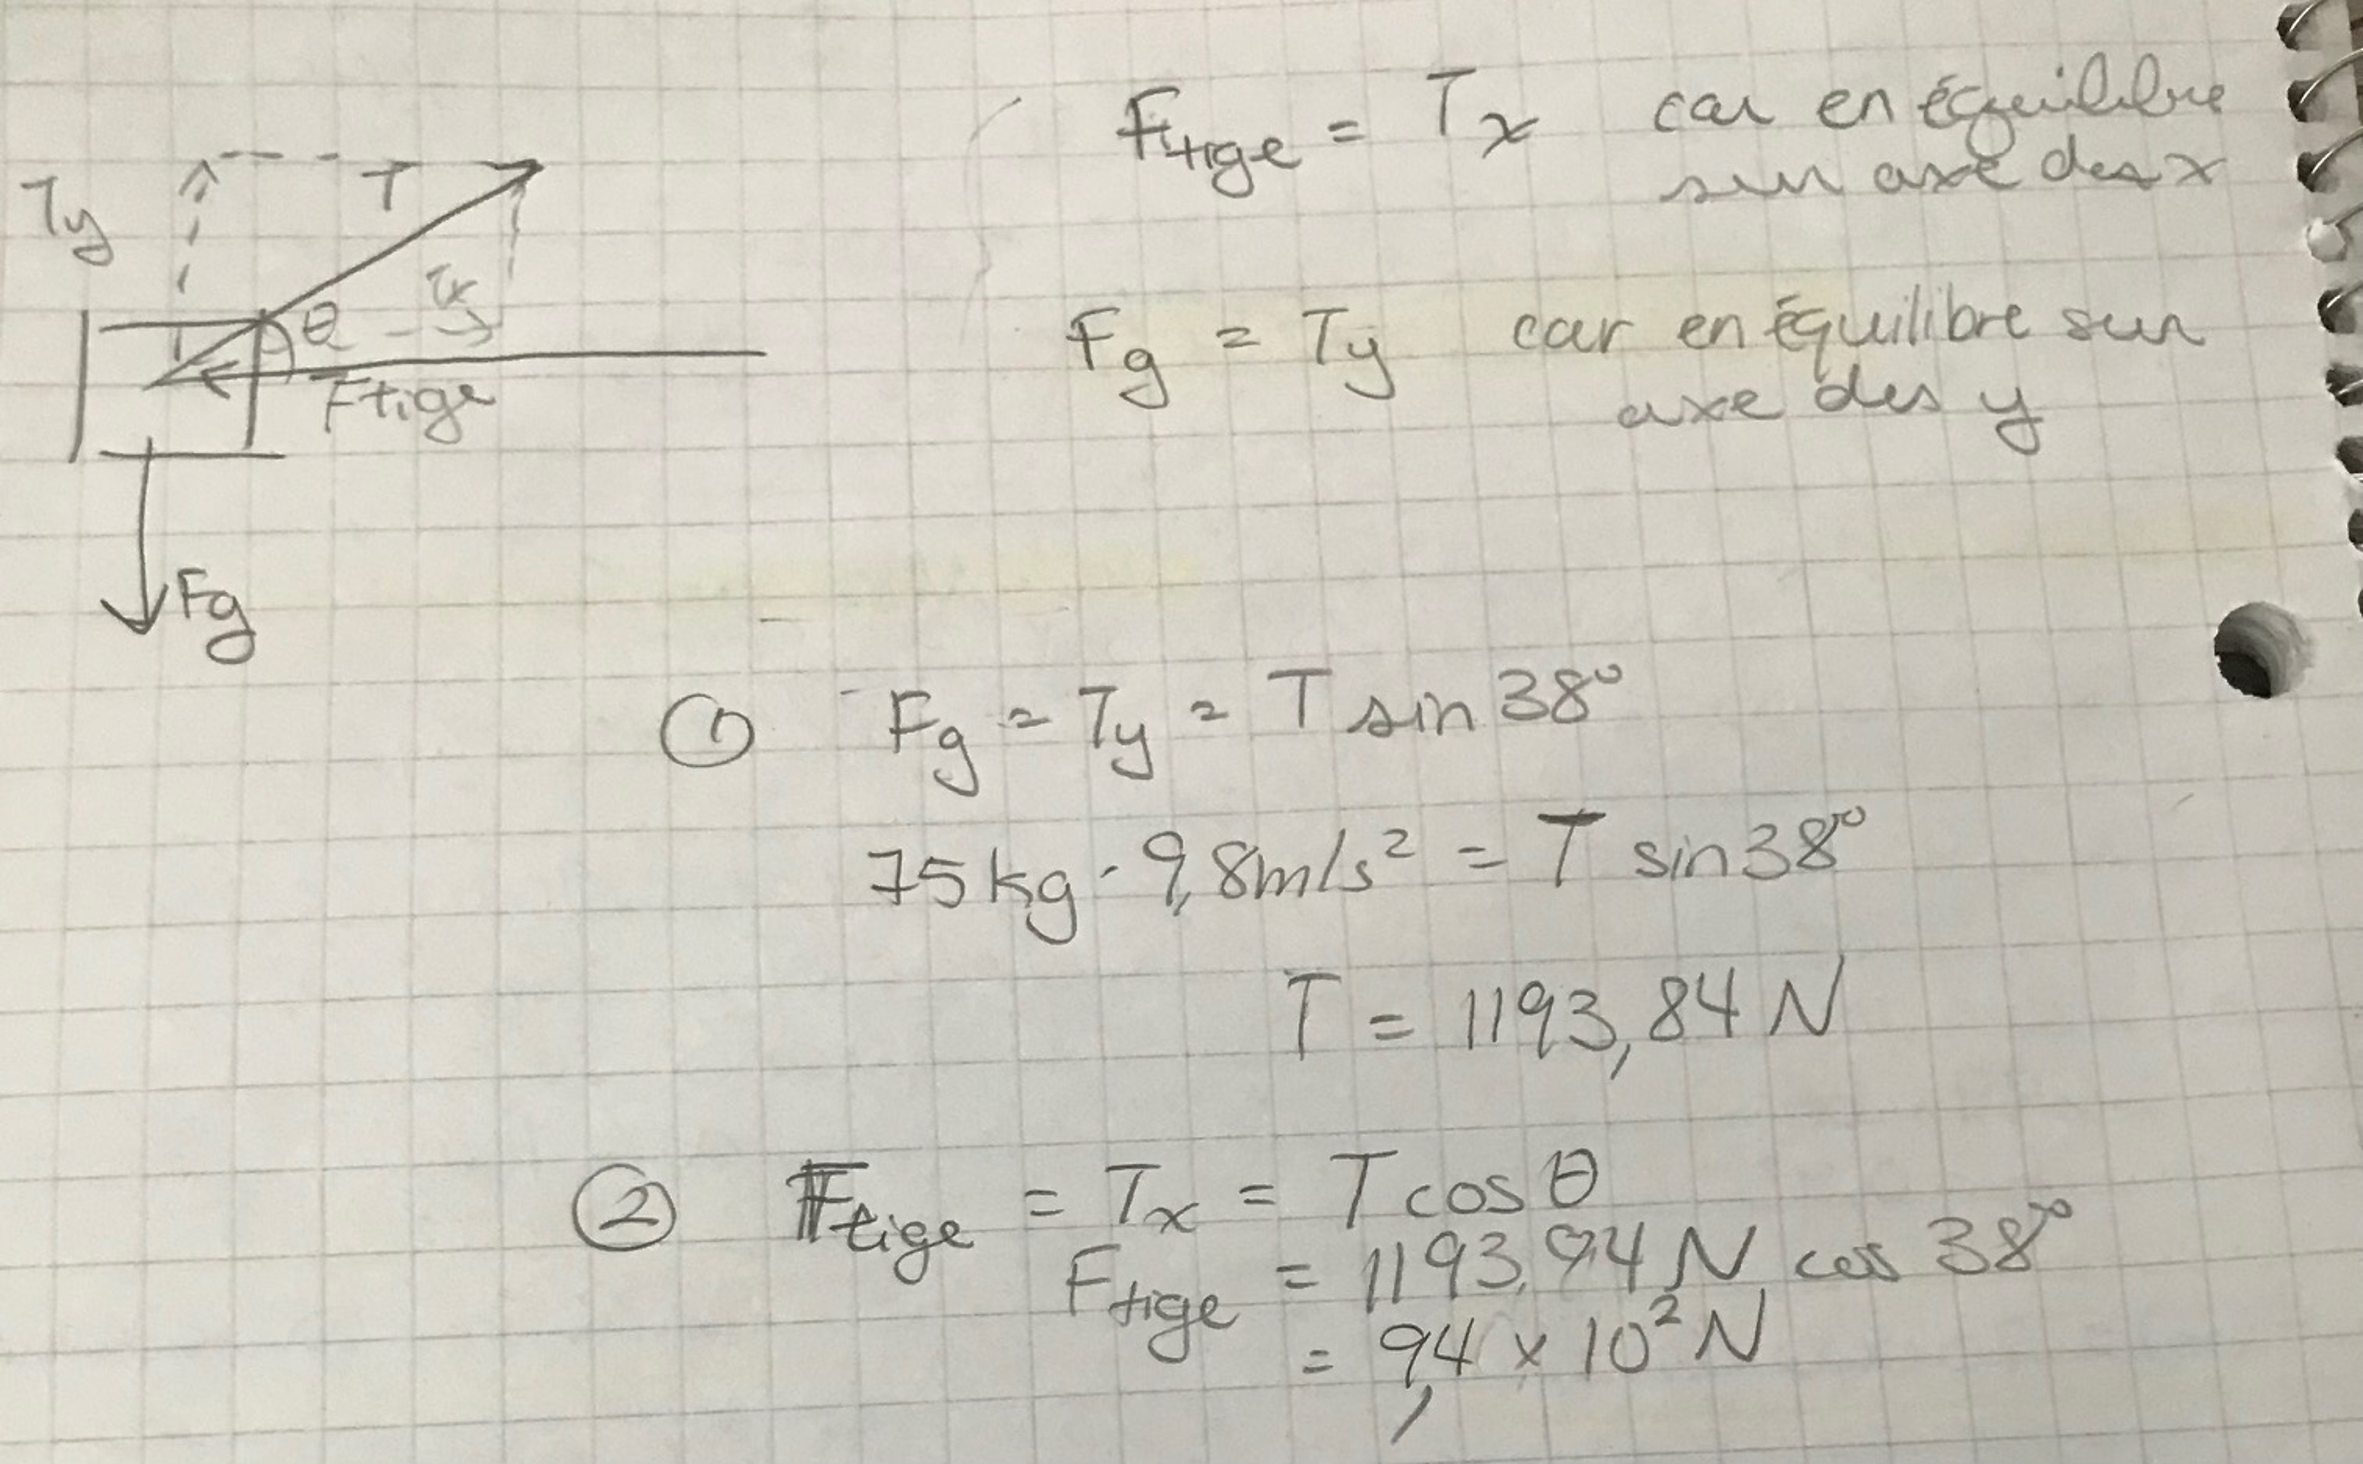 Ty
T
Tx
θ
Ftige
Fg
Ftige = Tx car en équilibre
sur axe des x
Fg = Ty car en équilibre sur
axe des y
① Fg = Ty = T sin 38°
75 kg · 9,8 m/s² = T sin 38°
T = 1193,84 N
② Ftige = Tx = T cos θ
Ftige = 1193,94 N cos 38°
= 9,4 x 10² N